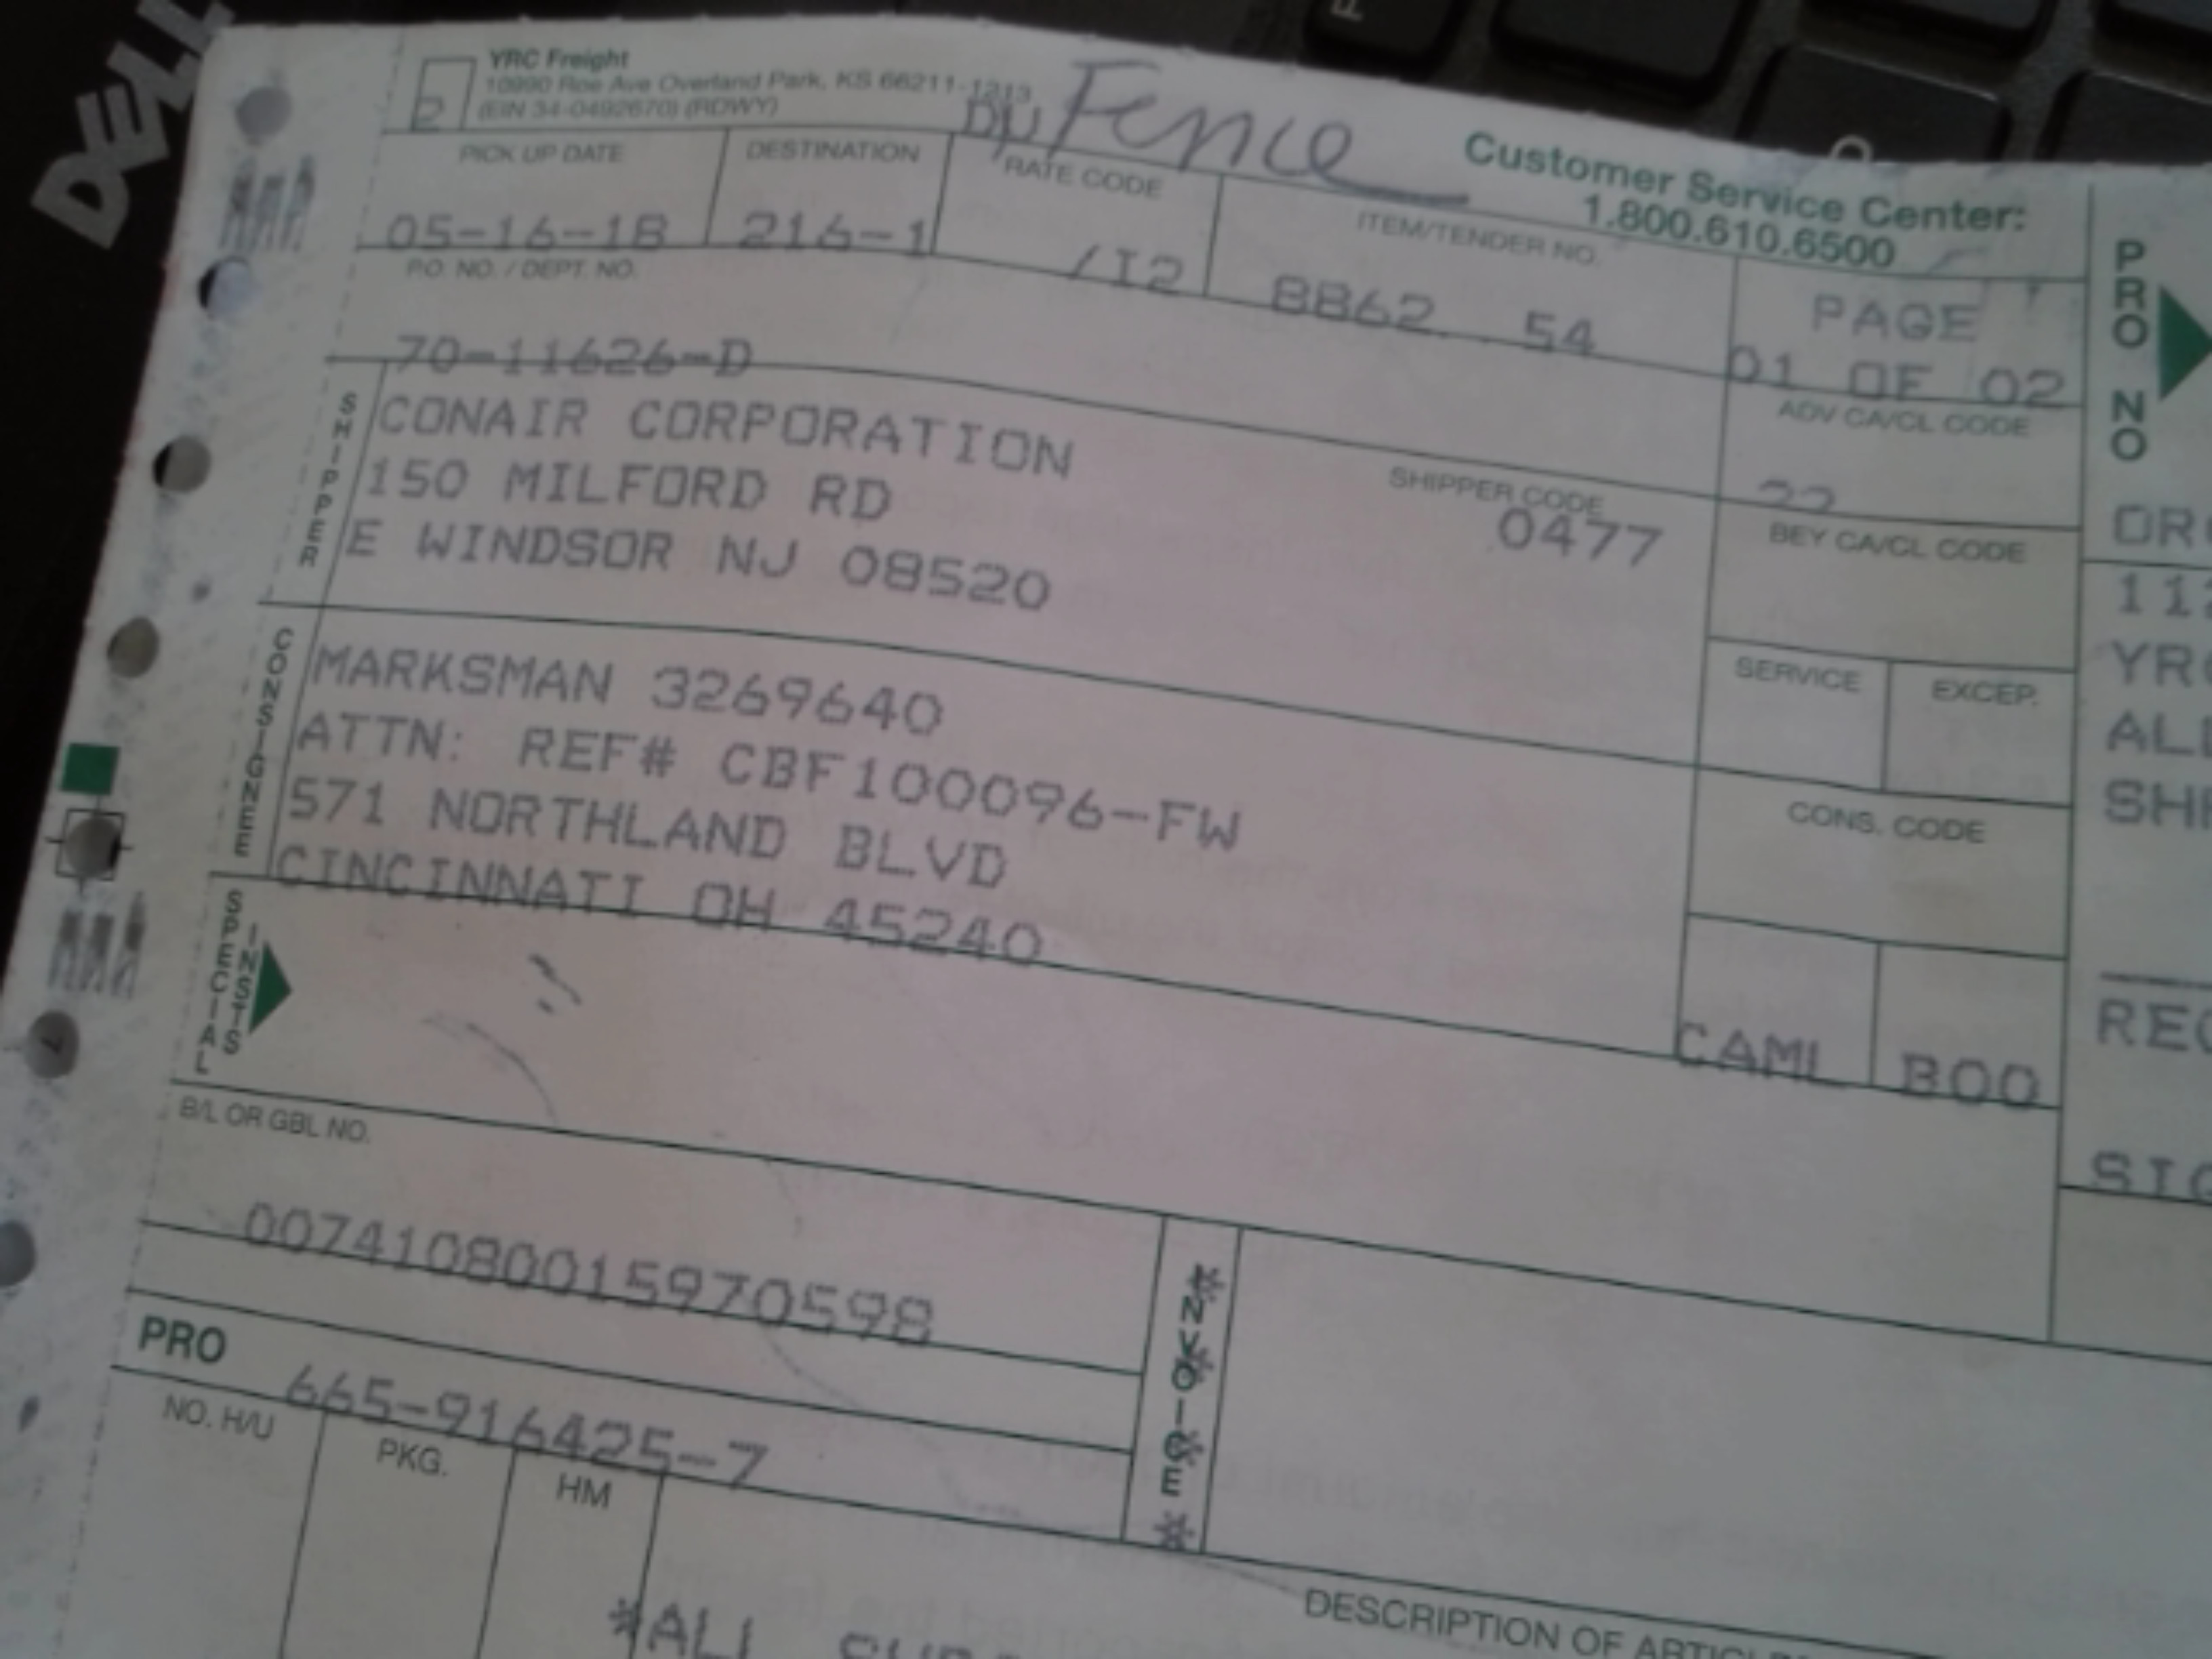 DELL
YRC Freight
10990 Roe Ave Overland Park, KS 66211-1213
(EIN 34-0492670) (RDWY)
2
DU Fence
Customer Service Center:
1.800.610.6500
PICK UP DATE
DESTINATION
RATE CODE
ITEM/TENDER NO.
05-16-18
216-1
/I2
8862 54
PAGE
01 OF 02
PRO NO
P.O. NO. / DEPT. NO.
70-11626-D
ADV CA/CL CODE
SHIPPER
CONAIR CORPORATION
150 MILFORD RD
E WINDSOR NJ 08520
SHIPPER CODE
0477
BEY CA/CL CODE
SERVICE
EXCEP.
CONSIGNEE
MARKSMAN 3269640
ATTN: REF# CBF100096-FW
571 NORTHLAND BLVD
CINCINNATI OH 45240
CONS. CODE
CAML
B00
SPECIAL INSTS
B/L OR GBL NO.
00741080015970598
*INVOICE*
PRO
665-916425-7
NO. H/U
PKG.
HM
DESCRIPTION OF
*ALL